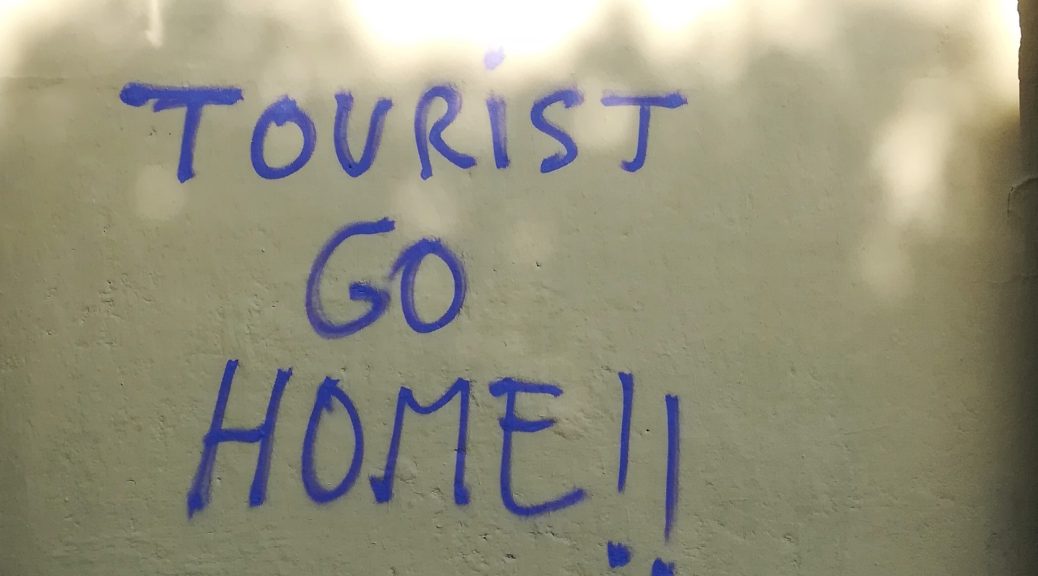 TOURiST
GO
HOME!!